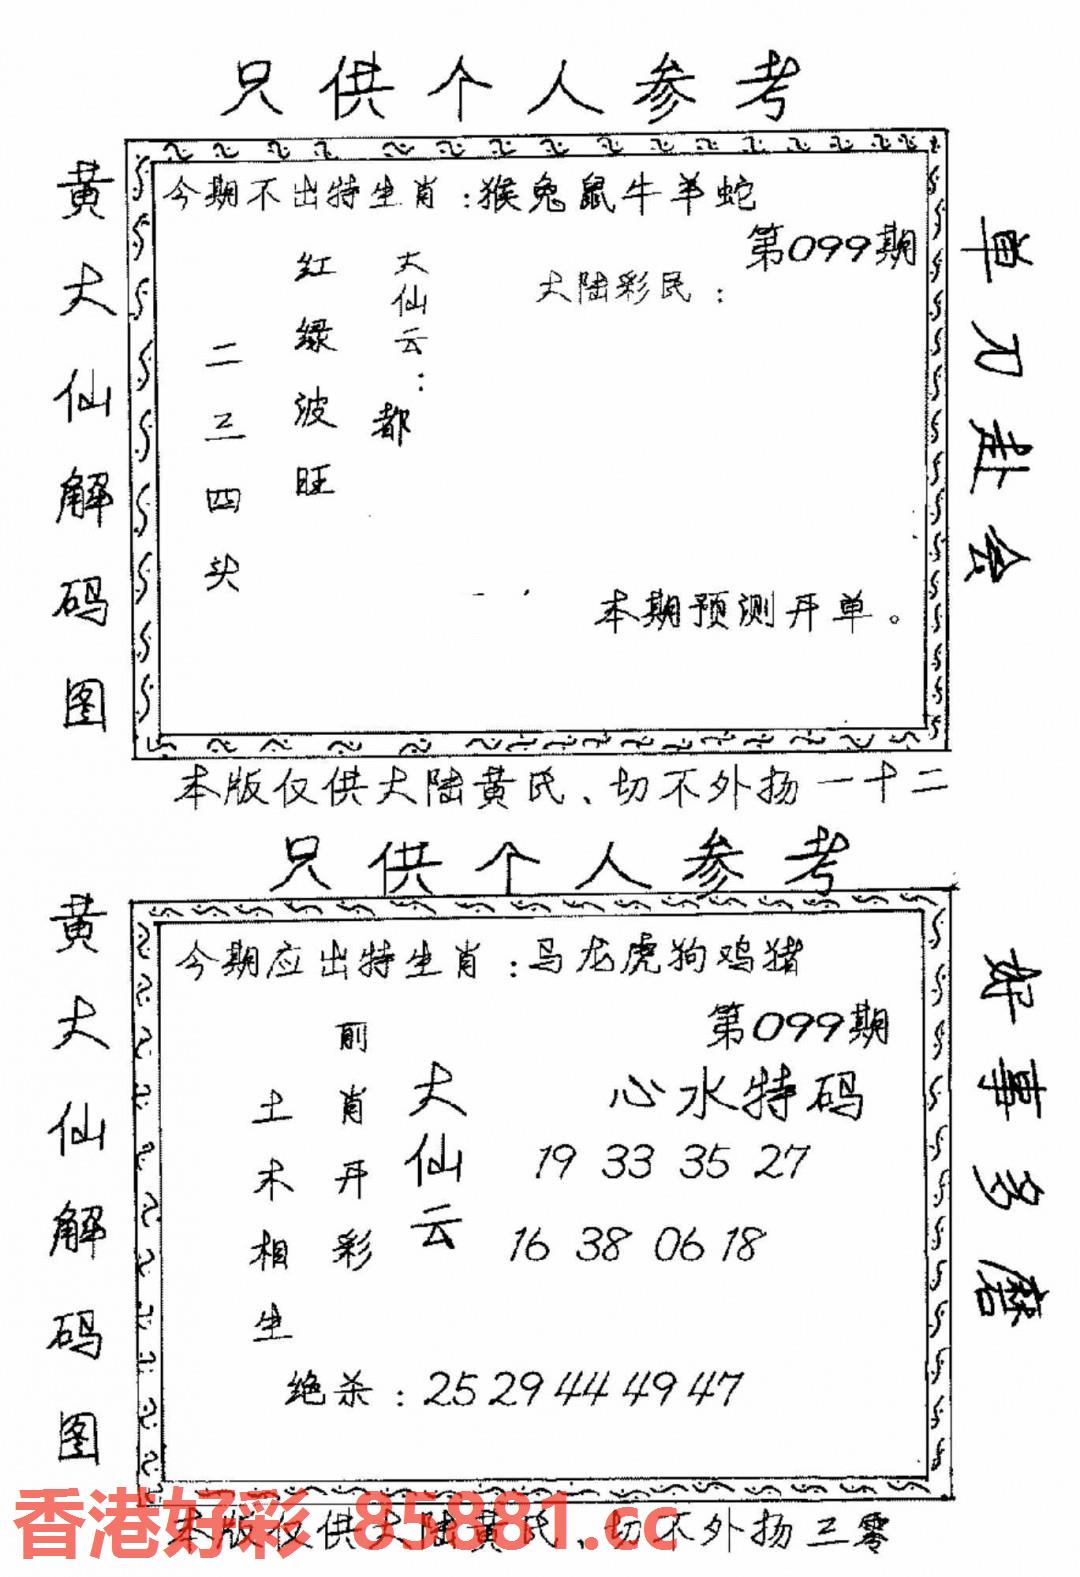 只供个人参考
黄大仙解码图
今期不出特生肖:猴兔鼠牛羊蛇
第099期
大陆彩民:
大仙云:
都
红绿波旺
二三四头
本期预测开单。
单刀赴会
本版仅供大陆黄氏、切不外扬一十二
只供个人参考
黄大仙解码图
今期应出特生肖:马龙虎狗鸡猪
第099期
心水特码
大仙云
前肖开彩
土木相生
19 33 35 27
16 38 06 18
绝杀:25 29 44 49 47
好事多磨
本版仅供大陆黄氏、切不外扬三零
香港好彩 85881.cc